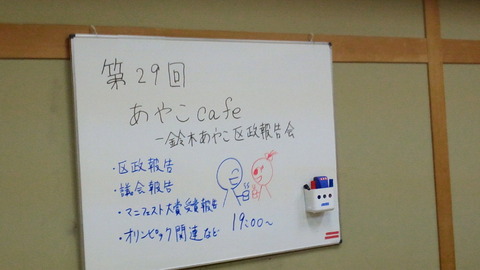 第29回
あやこcafe
ー鈴木あやこ区政報告会
・区政報告
・議会報告
・マニフェスト大賞受賞報告
・オリンピック関連など
19:00〜